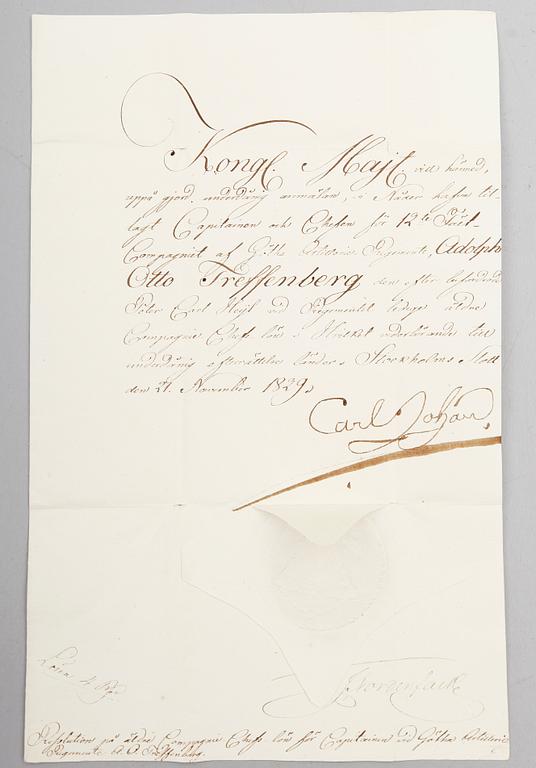 Kongl. Majt vill härmed,
uppå gjord underdånig anmälan, i Nåder hafva till-
lagt Capitainen och Chefen för 12te Fält-
Compagniet af Götha Artillerie Regemente, Adolph
Otto Treffenberg den efter befordrade
Carl Heijl vid Regementet lediga äldre
Compagnie Chefs lön; Hvilket vederbörande till
underdånig efterrättelse länder. Stockholms Slott
den 21. November 1829.
Carl Johan
Nordenfalk
Resolution på äldre Compagnie Chefs lön för Capitainen vid Götha Artillerie
Regemente A. O. Treffenberg.